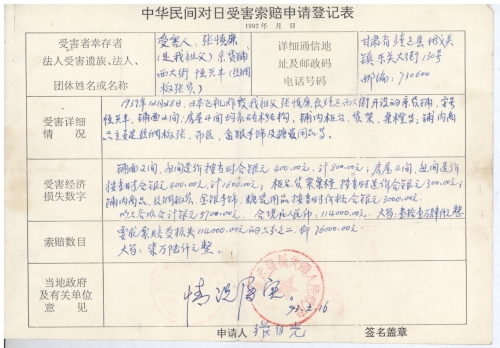 中华民间对日受害索赔申请登记表
1992年 月 日
受害者幸存者
法人受害遗族、法人、
团体姓名或名称
受害人、张慎
(是我祖父) 京货铺
西大街 恒兴丰
详细通信地
址及邮政码
电话号码
甘肃省 县 城关
镇东关大街130号
邮编:730600
受害详细
情 况
1937年12月 日本飞机炸毁我祖父张慎 西大街开设的京货铺,字号
恒兴丰,铺面2间,房屋4间 结构,铺内柜台,货架,桌橙 ;铺内商
品主要是丝绸 ,布匹,金银手饰及 用品等。
受害经济
损失数字
铺面2间,每间造价按当时合银元400.00元,计800.00元;房屋4间,每间造价
按当时合银元400.00元,计1600.00元;柜台货架桌橙按当时造价合银元300.00元;
铺内商品,丝绸 ,金银手饰, 用品按当时价格合银元3000.00元
以上合收合计银元5700.00元 合现在人民币:114000.00元 大写:壹拾壹万肆仟元整
索赔数目
要求索赔受损失114000.00元的三分之二,即76000.00元
大写:柒万陆仟元整
当地政府
及有关单位
意 见
情况属实。
93.2.16
申请人
签名盖章